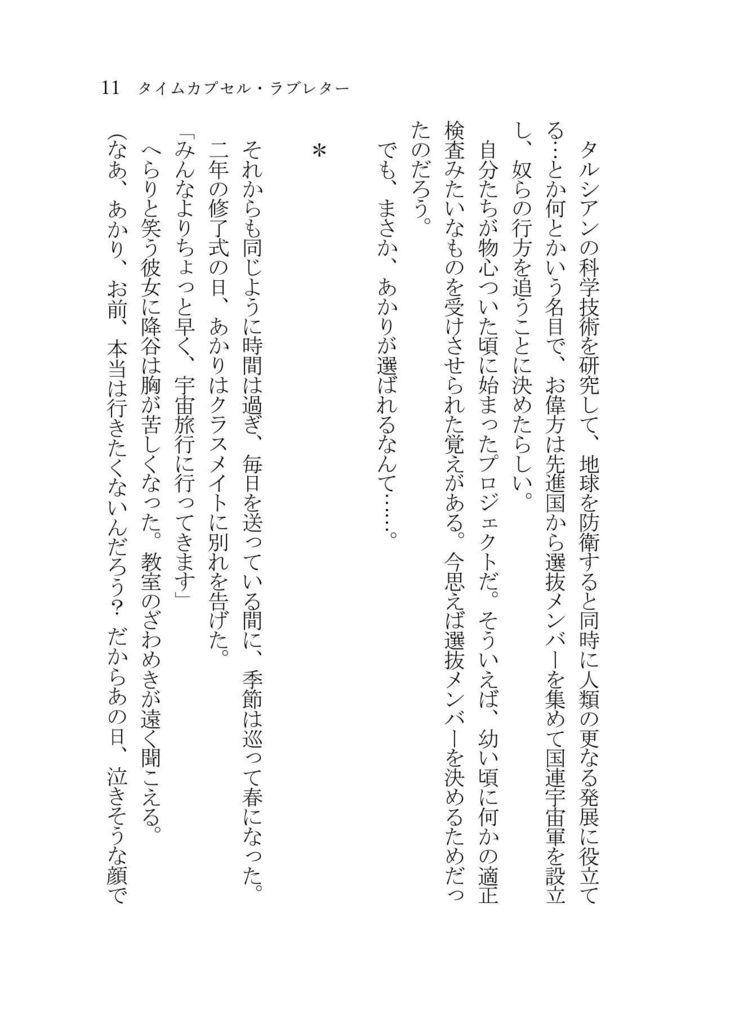 11 タイムカプセル・ラブレター
　タルシアンの科学技術を研究して、地球を防衛すると同時に人類の更なる発展に役立て
る…とか何とかいう名目で、お偉方は先進国から選抜メンバーを集めて国連宇宙軍を設立
し、奴らの行方を追うことに決めたらしい。
　自分たちが物心ついた頃に始まったプロジェクトだ。そういえば、幼い頃に何かの適正
検査みたいなものを受けさせられた覚えがある。今思えば選抜メンバーを決めるためだっ
たのだろう。
　でも、まさか、あかりが選ばれるなんて……。
＊
　それからも同じように時間は過ぎ、毎日を送っている間に、季節は巡って春になった。
　二年の修了式の日、あかりはクラスメイトに別れを告げた。
「みんなよりちょっと早く、宇宙旅行に行ってきます」
　へらりと笑う彼女に降谷は胸が苦しくなった。教室のざわめきが遠く聞こえる。
（なあ、あかり、お前、本当は行きたくないんだろう？ だからあの日、泣きそうな顔で